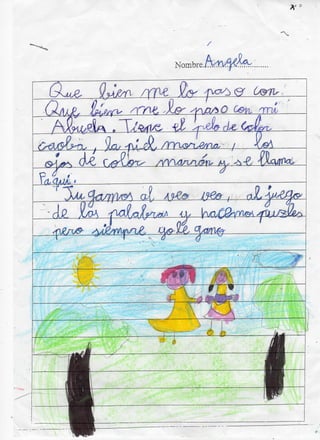 Nombre: Angela
Que bien me lo paso con.
Que bien me lo paso con mi
Abuela. Tiene el pelo de color
caoba, la piel morena, los
ojos de color marrón y se llama
Paqui.
Jugamos al veo veo, al juego
de las palabras y hacemos puzles
pero siempre yo le gano